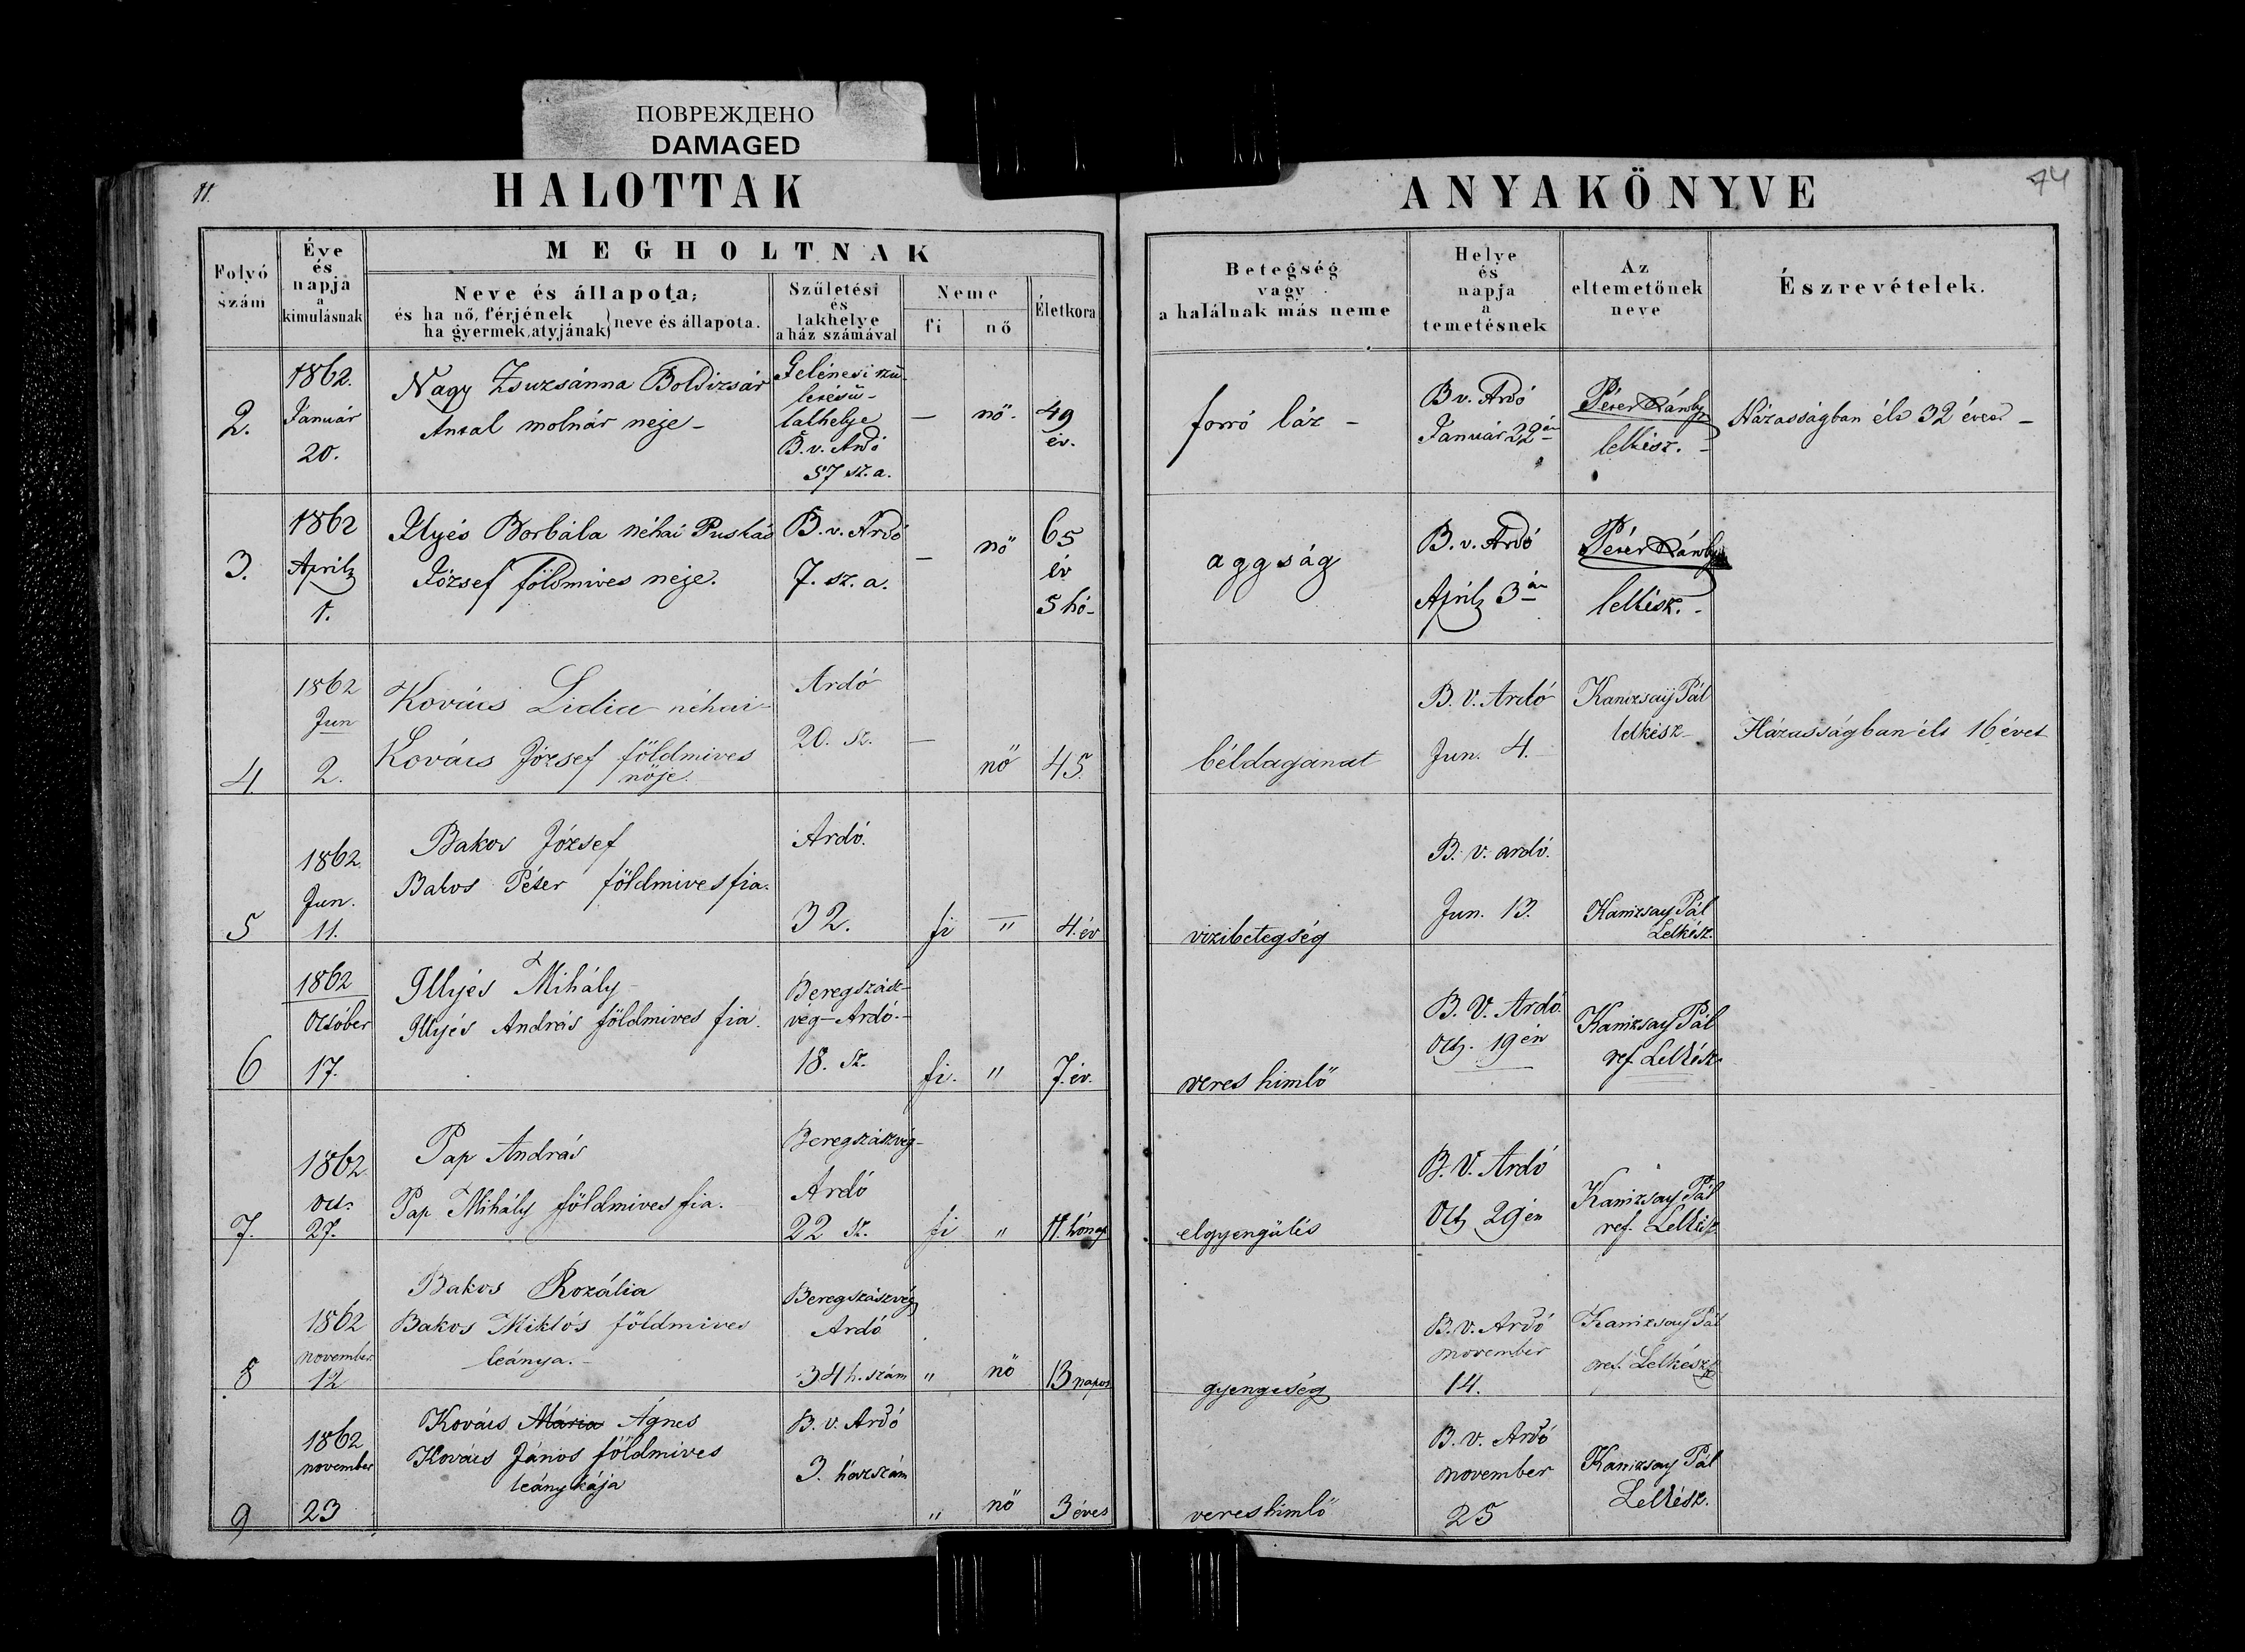 ПОВРЕЖДЕНО
DAMAGED
11.
HALOTTAK
ANYAKÖNYVE
74
Folyó
szám
Éve
és
napja
a
kimulásnak
MEGHOLTNAK
Neve és állapota;
és ha nő, férjének
ha gyermek, atyjának
neve és állapota.
Születési
és
lakhelye
a ház számával
Neme
fi
nő
Életkora
Betegség
vagy
a halálnak más neme
Helye
és
napja
a
temetésnek
Az
eltemetőnek
neve
Észrevételek.
2.
1862.
Január
20.
Nagy Zsuzsánna Boldizsár
Antal molnár neje -
Gelénesi szü-
letésü-
lakhelye
B. v. Ardó
57 sz. a.
—
nő.
49
év.
forró láz -
B v. Ardó
Január 22án
Péter
lelkész. -
Házasságban élt 32 évet -
3.
1862
April
1.
Ilyés Borbála néhai Puskás
József földmives neje.
B. v. Ardó
7. sz. a.
—
nő
65
év
5 hó-
aggság
B. v. Ardó
April 3án
Péter
lelkész. -
4
1862
Jun
2.
Kovács Lidia néhai
Kovács József földmives
nője.
Ardó
20. sz.
—
nő
45.
béldaganat
B. V. Ardó
Jun. 4.
Kanizsay Pál
lelkész
Házasságban élt 16 évet
5
1862.
Jun.
11.
Bakos József
Bakos Péter földmives fia.
Ardó.
32.
fi
"
4. év
vizibetegség
B. v. ardó.
Jun. 13.
Kanizsay Pál
Lelkész.
6
1862
October
17.
Illyés Mihály
Illyés András földmives fia.
Beregszász-
vég-Ardó.-
18. sz.
fi.
"
7. év.
veres himlő
B. V. Ardó.
Oct. 19 én
Kanizsay Pál
ref. Lelkész
7.
1862
Oct.
27.
Pap András
Pap Mihály földmives fia.
Beregszászvég-
Ardó
22 sz.
fi
"
11. hónap
elgyengülés
B. V. Ardó
Oct 29 én
Kanizsay Pál
ref. Lelkész
8
1862
november
12
Bakos Rozália
Bakos Miklós földmives
leánya.-
Beregszászvég
Ardó
34 h. szám
"
nő
13 napos
gyengeség
B. v. Ardó
november
14.
Kanizsay Pál
ref. Lelkész
9
1862
november
23
Kovács Mária Ágnes
Kovács János földmives
leánykája
B. v. Ardó
3. házszám
"
nő
3 éves
veres himlő
B. v. Ardó
november
25
Kanizsay Pál
Lelkész.